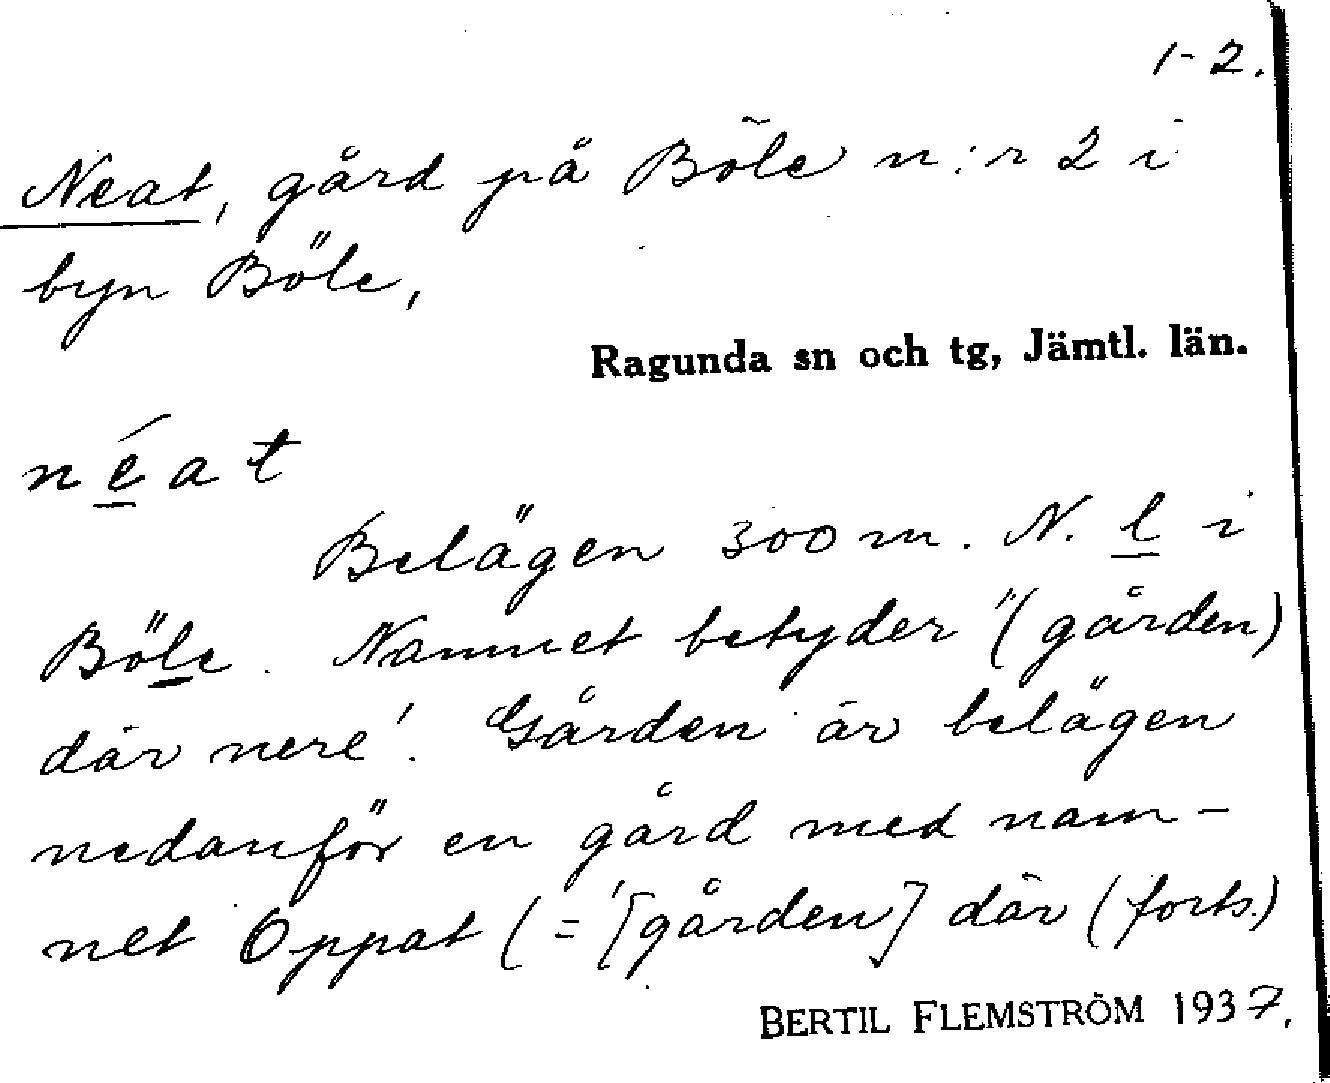 1-2.
Neat, gård på Böle n:r 2 i
byn Böle,
Ragunda sn och tg, Jämtl. län.
néat
Belägen 300 m. N. l i
Böle. Namnet betyder "(gården)
där nere'. Gården är belägen
nedanför en gård med nam-
net Oppat (= '[gården] där (forts.)
BERTIL FLEMSTRÖM 1937.